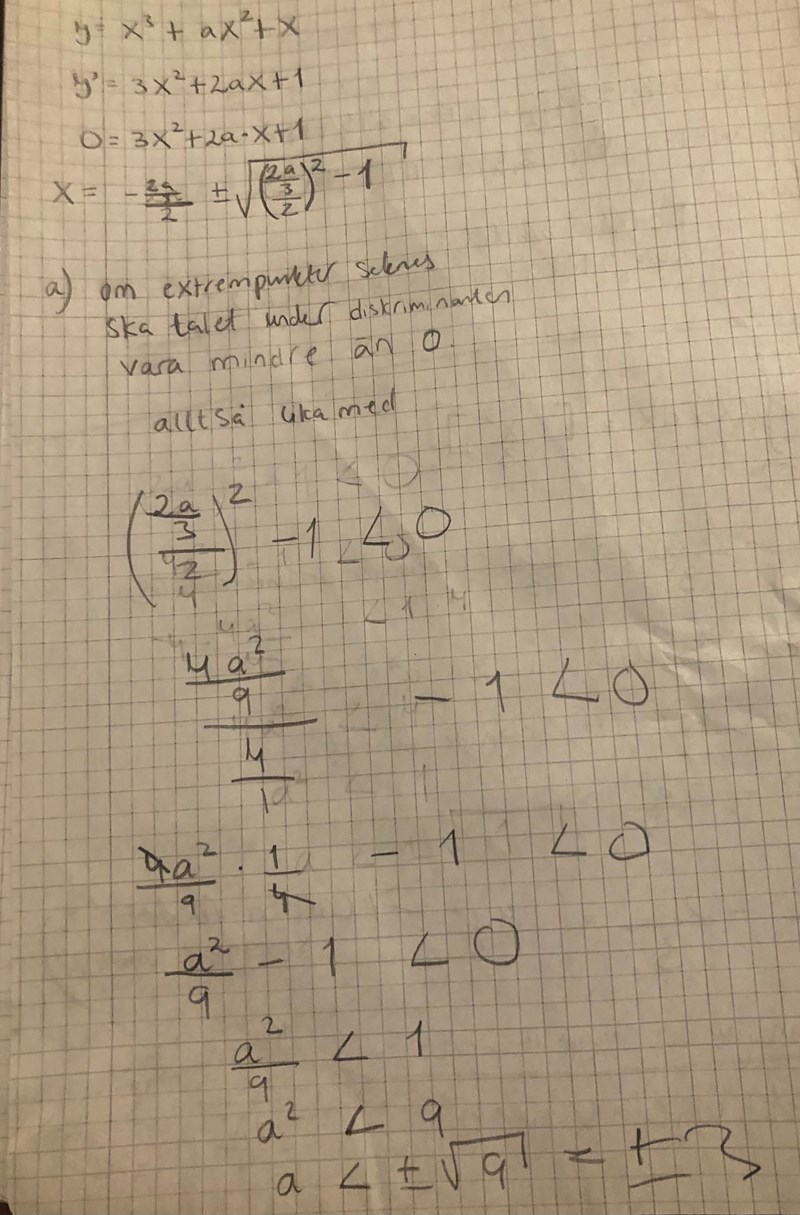 y = x³ + ax² + x
y' = 3x² + 2ax + 1
0 = 3x² + 2a·x + 1
x = - ((2a/3)/2) ± √(((2a/3)/2)² - 1)
a) om extrempunkter saknas
ska talet under diskriminanten
vara mindre än 0.
alltså lika med
((2a/3)/2)² - 1 < 0
(4a²/9)/(4/1) - 1 < 0
4a²/9 · 1/4 - 1 < 0
a²/9 - 1 < 0
a²/9 < 1
a² < 9
a < ±√9 = ±3